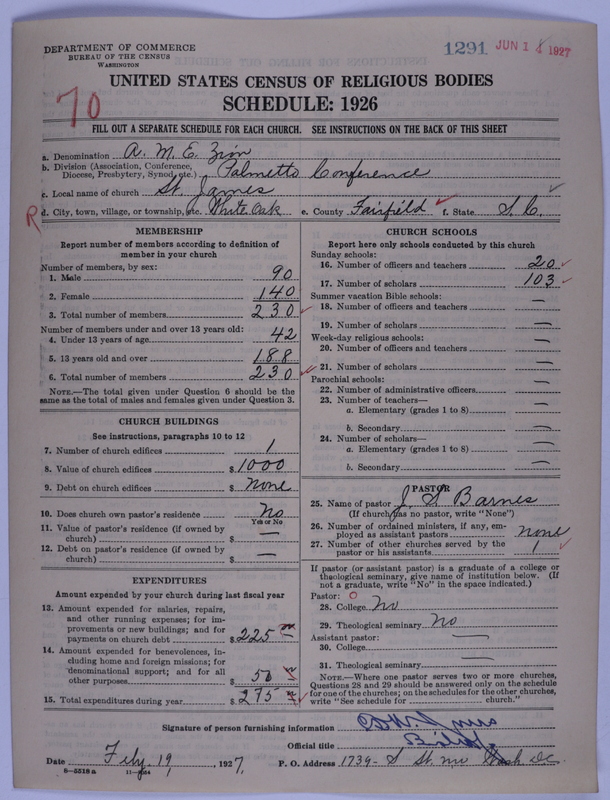 DEPARTMENT OF COMMERCE
BUREAU OF THE CENSUS
WASHINGTON
1291 JUN 14 1927
UNITED STATES CENSUS OF RELIGIOUS BODIES
SCHEDULE: 1926
70
FILL OUT A SEPARATE SCHEDULE FOR EACH CHURCH. SEE INSTRUCTIONS ON THE BACK OF THIS SHEET
a. Denomination A. M. E. Zion
b. Division (Association, Conference, Diocese, Presbytery, Synod, etc.) Palmetto Conference
c. Local name of church St. James
R d. City, town, village, or township, etc. White Oak e. County Fairfield f. State S. C.
MEMBERSHIP
Report number of members according to definition of
member in your church
Number of members, by sex:
1. Male 90
2. Female 140
3. Total number of members 230
Number of members under and over 13 years old:
4. Under 13 years of age 42
5. 13 years old and over 188
6. Total number of members 230
NOTE.—The total given under Question 6 should be the
same as the total of males and females given under Question 3.
CHURCH BUILDINGS
See instructions, paragraphs 10 to 12
7. Number of church edifices 1
8. Value of church edifices $1000
9. Debt on church edifices $ None
10. Does church own pastor's residence No
Yes or No
11. Value of pastor's residence (if owned by
church) $ —
12. Debt on pastor's residence (if owned by
church) $ —
EXPENDITURES
Amount expended by your church during last fiscal year
13. Amount expended for salaries, repairs,
and other running expenses; for im-
provements or new buildings; and for
payments on church debt $225
14. Amount expended for benevolences, in-
cluding home and foreign missions; for
denominational support; and for all
other purposes $ 50
15. Total expenditures during year $ 275
CHURCH SCHOOLS
Report here only schools conducted by this church
Sunday schools:
16. Number of officers and teachers 20
17. Number of scholars 103
Summer vacation Bible schools:
18. Number of officers and teachers —
19. Number of scholars —
Week-day religious schools:
20. Number of officers and teachers —
21. Number of scholars —
Parochial schools:
22. Number of administrative officers —
23. Number of teachers—
a. Elementary (grades 1 to 8) —
b. Secondary —
24. Number of scholars—
a. Elementary (grades 1 to 8) —
b. Secondary —
PASTOR
25. Name of pastor J. S. Barnes
(If church has no pastor, write "None")
26. Number of ordained ministers, if any, em-
ployed as assistant pastors none
27. Number of other churches served by the
pastor or his assistants 1
If pastor (or assistant pastor) is a graduate of a college or
theological seminary, give name of institution below. (If
not a graduate, write "No" in the space indicated.)
Pastor: O
28. College No
29. Theological seminary No
Assistant pastor:
30. College —
31. Theological seminary —
NOTE.—Where one pastor serves two or more churches,
Questions 28 and 29 should be answered only on the schedule
for one of the churches; on the schedules for the other churches,
write "See schedule for church."
Signature of person furnishing information
Official title Bishop
Date Feby. 19, 1927. P. O. Address 1739- S St. nw Wash DC
8—5518 a